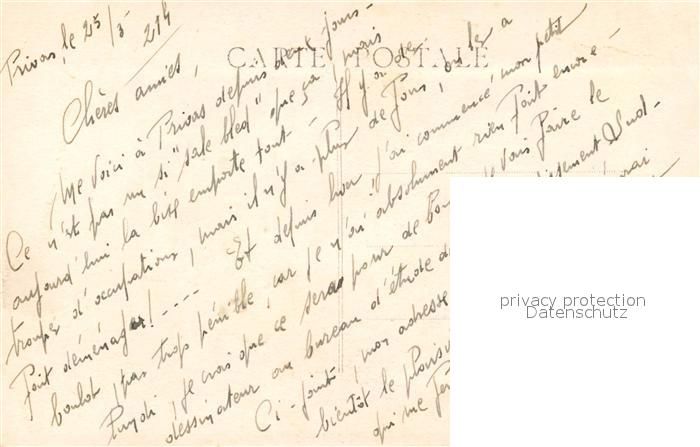 Privas, le 25/5 214
CARTE POSTALE
Chères amies,
Me voici à Privas depuis deux jours -
Ce n'est pas un si "sale bled" que ça, mais
aujourd'hui la bise emporte tout - Il y a de
troupes d'occupations, mais il n'y a plus de fous, on les a
fait déménager! ---- Et depuis hier "j'ai commencé" mon petit
boulot, pas trop pénible, car je n'ai absolument rien fait encore -
je crois que ce sera pour de bon je vais faire le
dessinateur au bureau d'étude
Ci-joint, mon adresse
bientôt le plaisir
qui me
privacy protection
Datenschutz